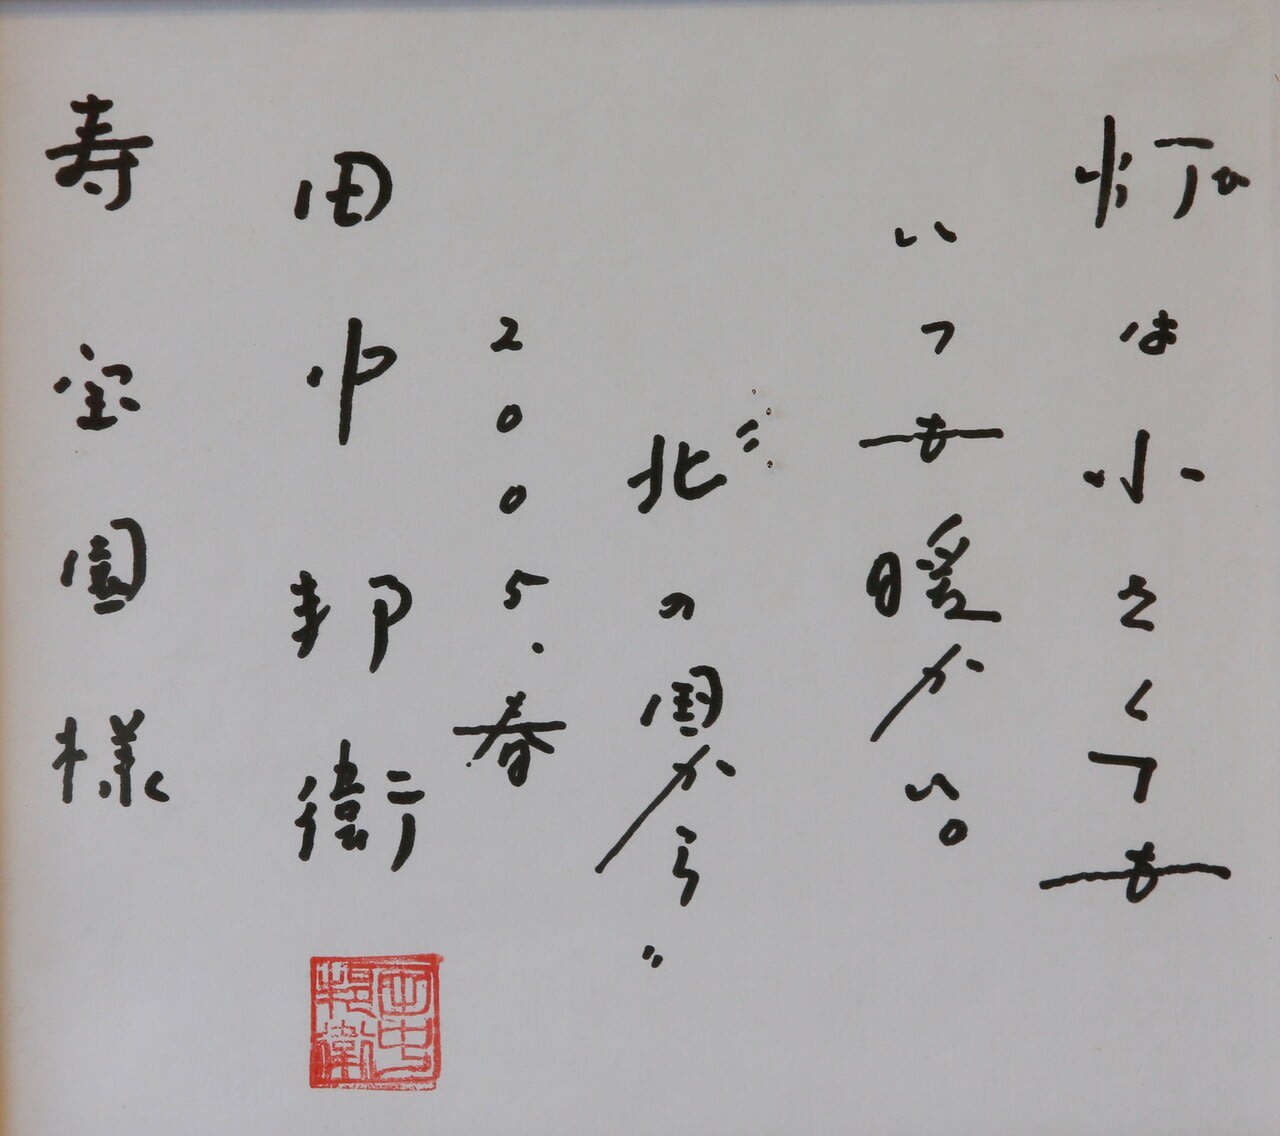 灯は小さくても
いつも暖かい。
〝北の国から〟
2005.春
田中邦衛
寿宝園様
田中邦衛